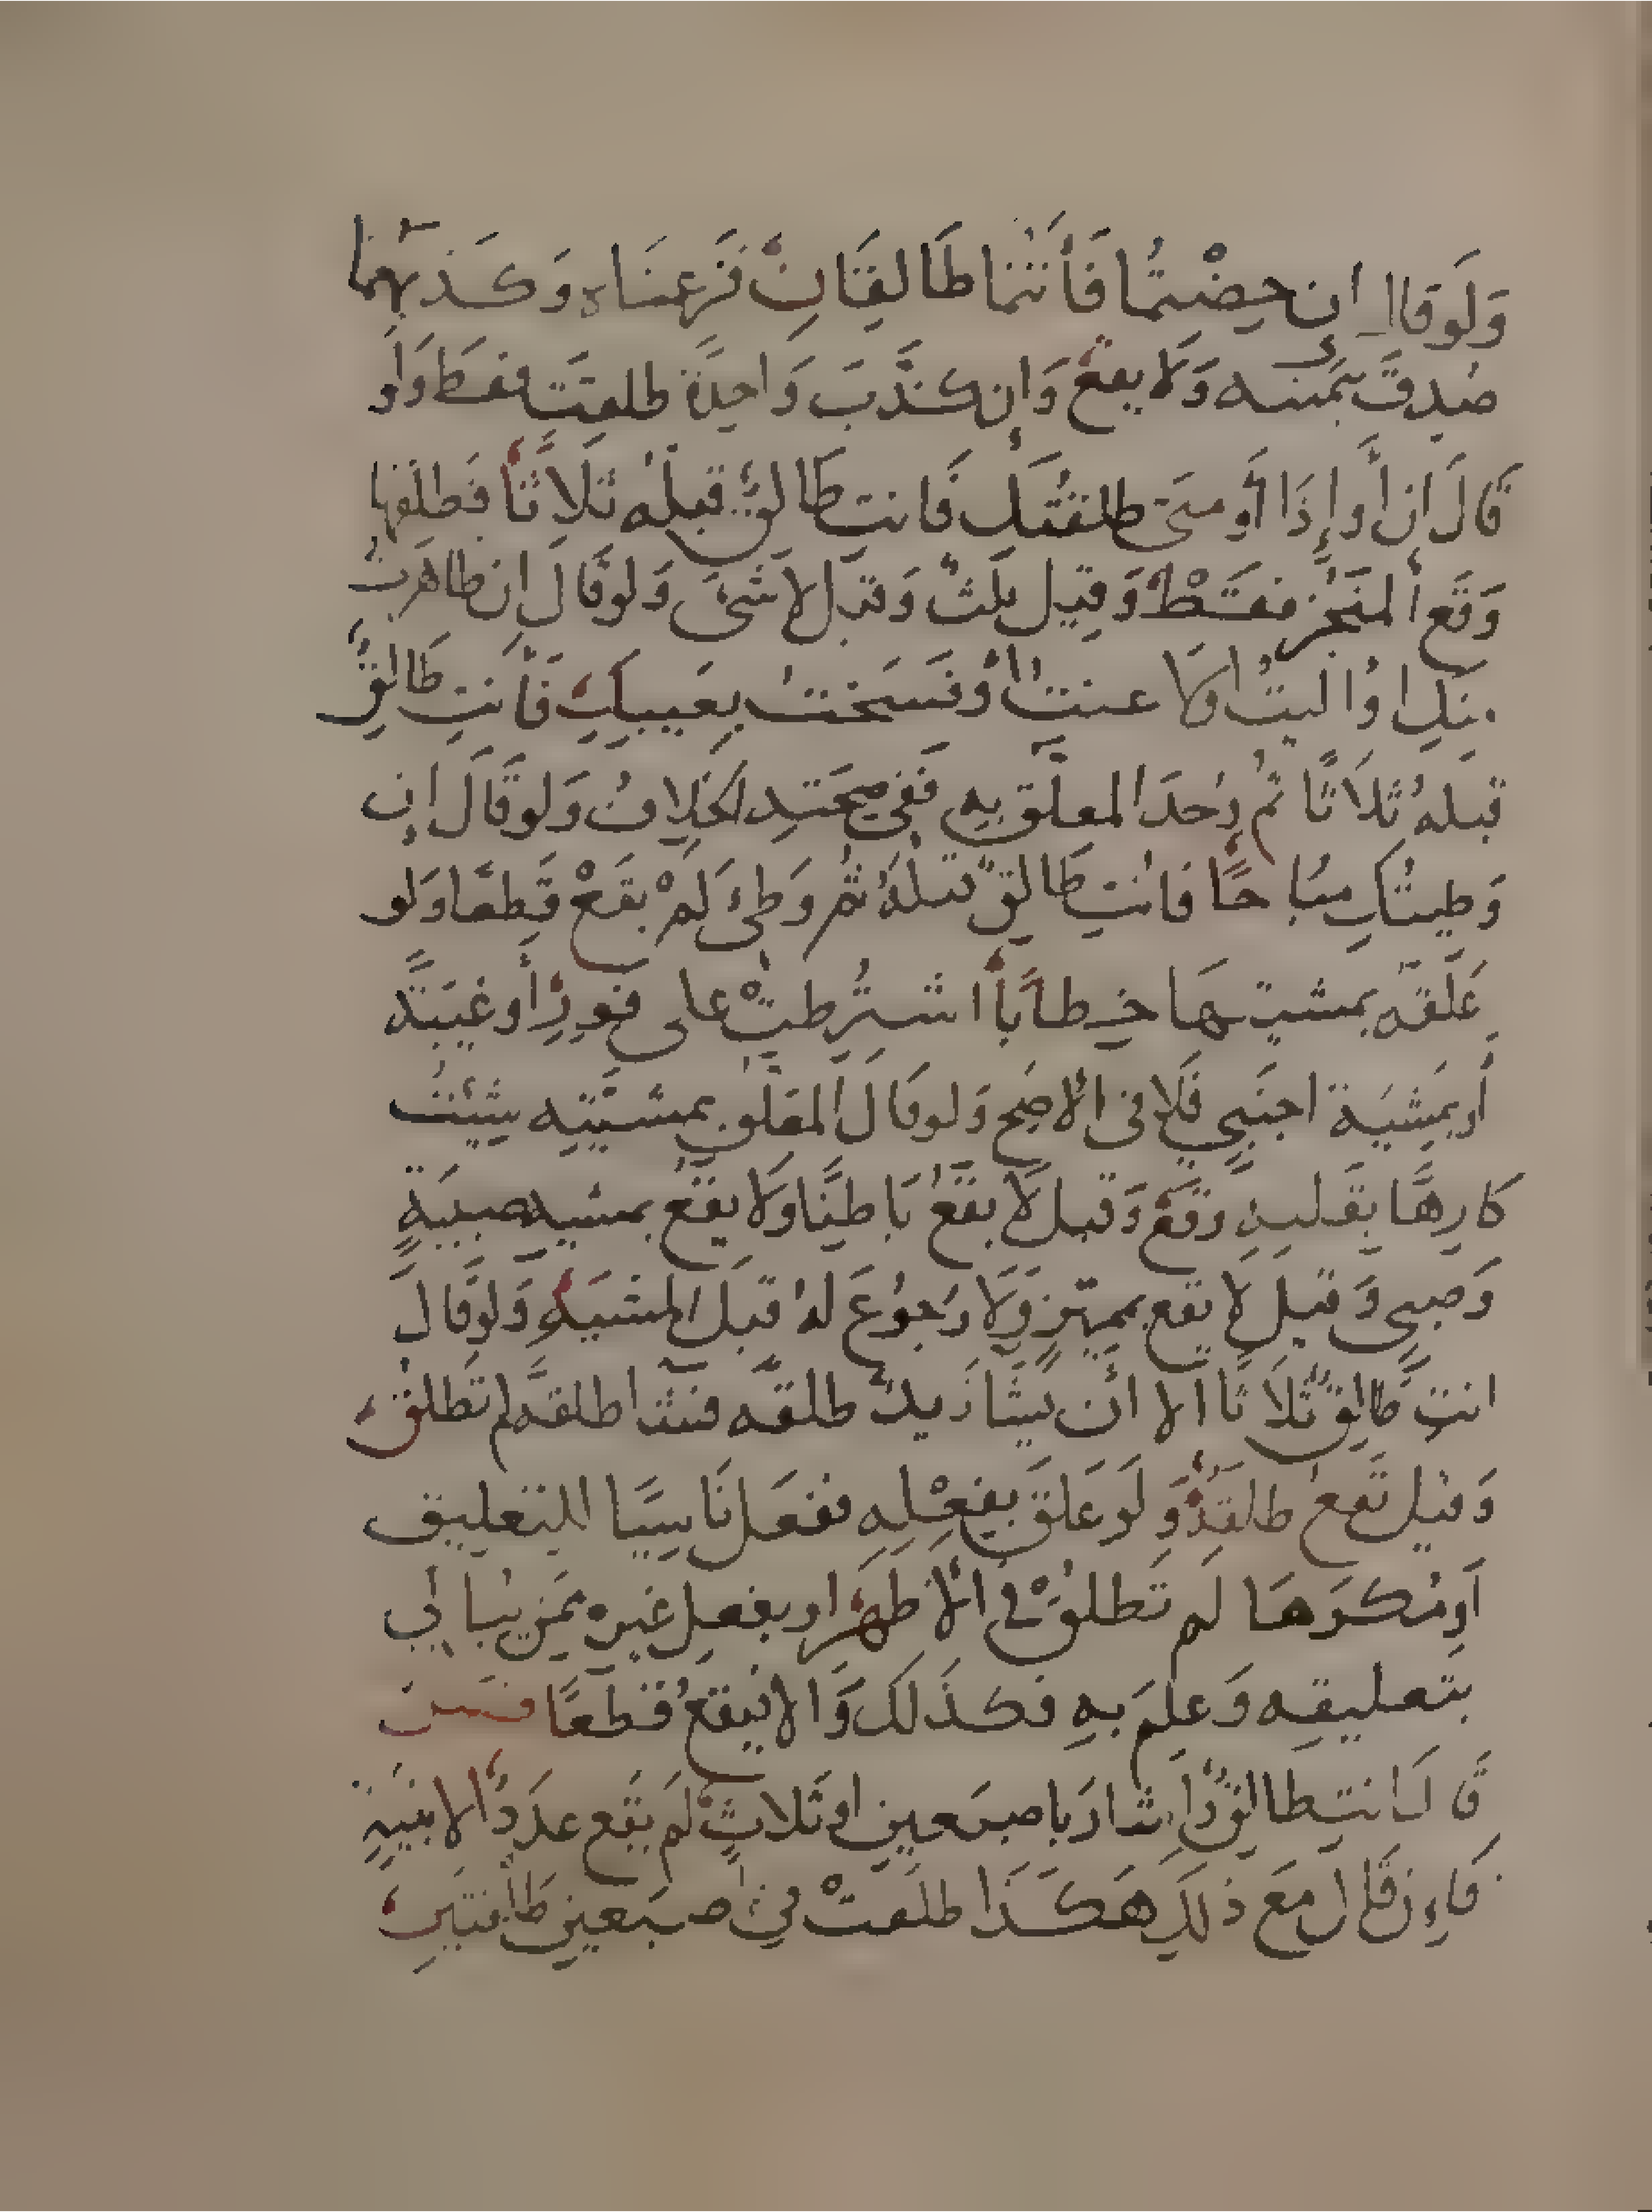 وَلَو قَالَ إِن حِضْتُمَا فَأَنْتُمَا طَالِقَانِ فَزَعَمَتَاه وَكَذَّبَهُمَا
صُدِّقَ بِيَمِينِه وَلَا يَقَع وَإِن كَذَّبَ وَاحِدَةً طُلِّقَت فَقَط وَلَو
قَالَ ان أَو إِذَا أَو مَتَى طلقتُكِ فَانتِ طَالِقٌ قَبْلَه ثَلَاثًا فَطَلَّقَهَا
وَقَعَ المُنَجَّزُ فَقَطْ وَقِيلَ ثَلَثٌ وَقِيلَ لَا شَىْءَ وَلَو قَالَ إِن ظَاهَرتُ
مِنكِ اوْ اليتُ اوْ لاعنتُ اوْ فَسَخْتُ بِعَيبِكِ فَأَنتِ طَالِقٌ
قَبلَهُ ثَلَاثًا ثُم وُجِدَ المعلَّق بِهِ فَفِى صِحَّتِه الخِلَافُ وَلَو قَالَ إِن
وَطِيتُكِ مُبَاحًا فَانتِ طَالِقٌ قَبْلَهُ ثُم وَطِئَ لَمْ يَقَعْ قَطعًا وَلَو
عَلَّقَهُ بمشيتِهَا خِطَابًا اشتُرِطَتْ عَلى فَورٍ أَو غَيْبَةً
أَو بِمَشِيَة اجنَبِي فَلَا فى الأَصَح وَلَو قَالَ المعَلق بِمَشِيَّتِه شِئتُ
كَارِهًا بِقَلبِهِ وَقَعَ وَقيل لَا يقَعُ بَاطِنًا وَلَا يقَعُ بمشيه صبيَةٍ
وَصَبِى وَقيل لَا يقع بمميزٍ وَلَا رُجُوعَ لَهُ قَبلَ المشيَةِ وَلَو قَالَ
انتِ طَالِق ثَلَاثًا الا أَن يَشَا زَيدٌ طلقَه فشا طلقَه لم تَطلق
وَقيل تَقع طلقَةٌ وَلَو عَلقَ بِفِعْلِهِ ففَعل نَاسِيًا للتعليق
اَو مُكرَهَا لَم تَطلقْ فِى الأظهَر او بفعل غيره ممن يُبَالِي
بتعليقِه وَعَلِمَ بهِ فَكَذَلِكَ وَالا فيقَعُ قَطعًا فَصل
قَالَ انتِ طَالِقٌ وَاشَارَ باصبعين او ثَلَاثٍ لَم يقَع عدَدٌ الا بنيةٍ
فَإِن قَالَ مَعَ ذَلِك هَكَذَا طلقَتْ فِي اصبَعين طَلْقتَينِ